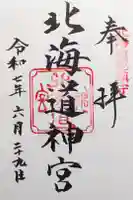 奉拝
北海道神宮
令和七年六月二十九日